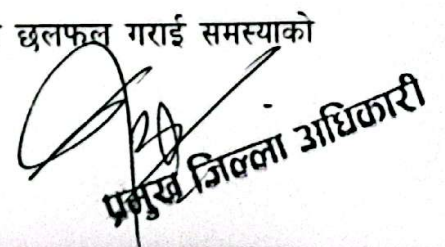 छलफल गराई समस्याको
प्रमुख जिल्ला अधिकारी